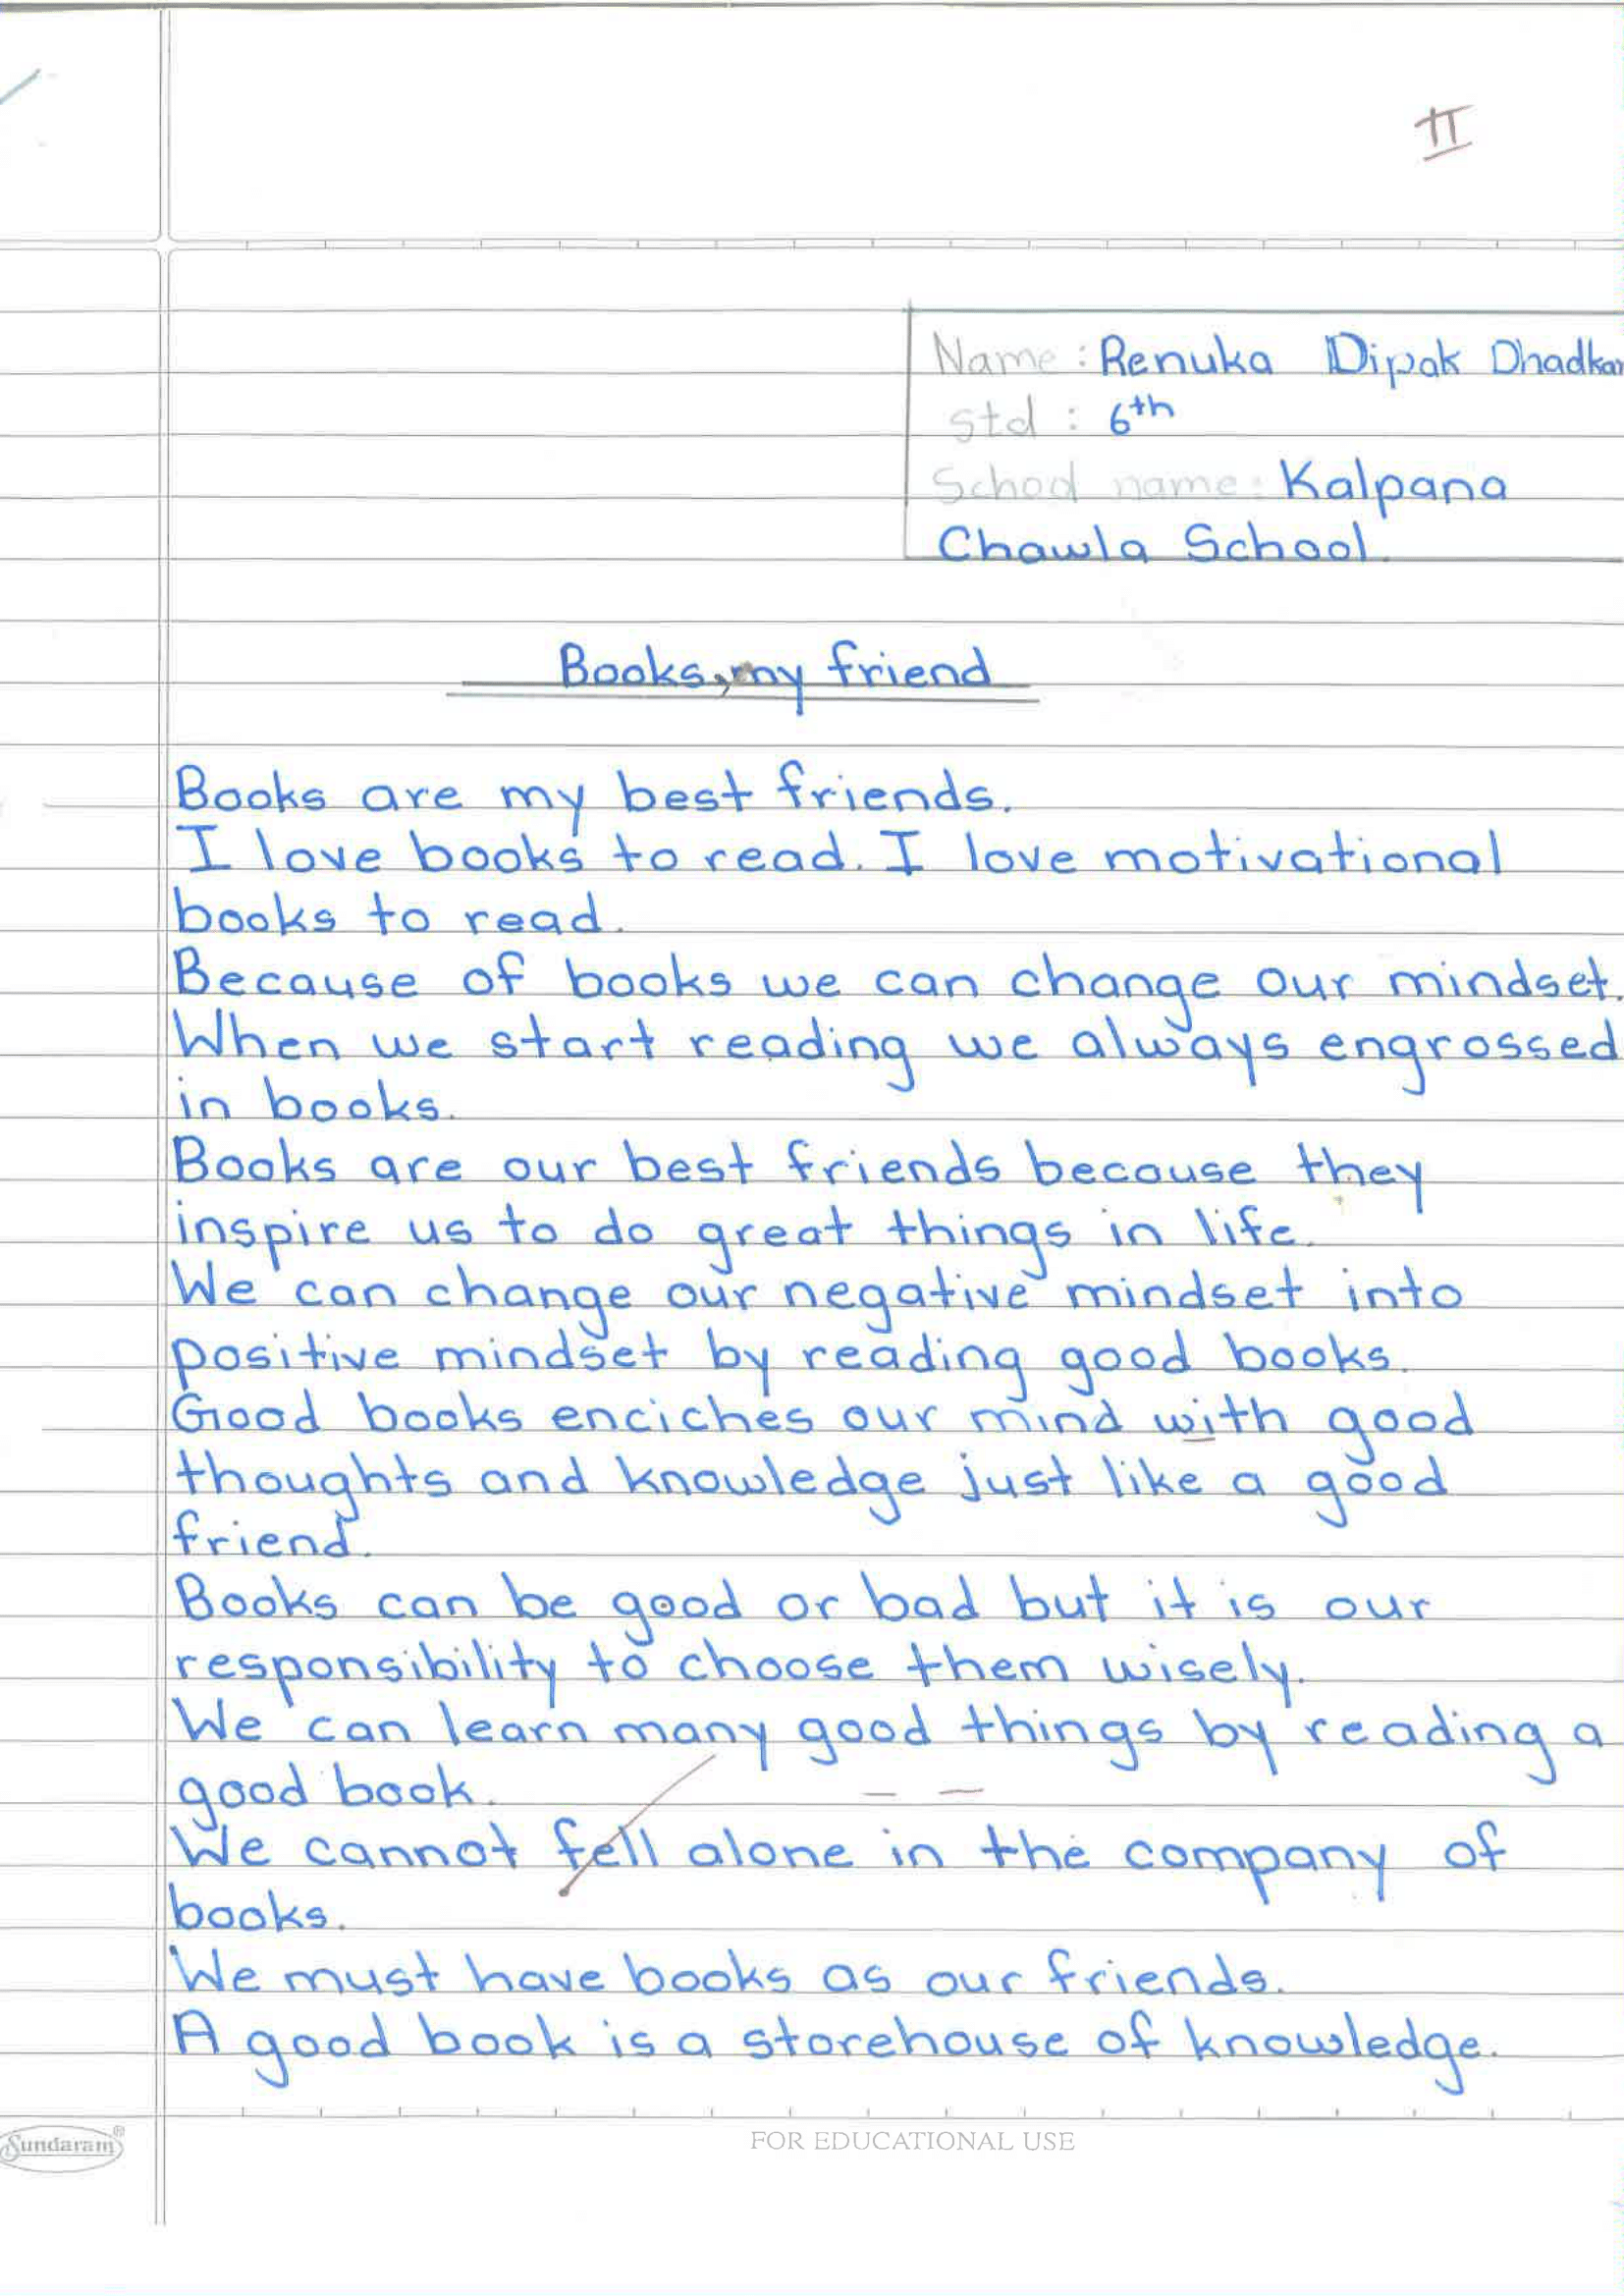 II
Name : Renuka Dipak Dhadkar
Std : 6th
School name : Kalpana
Chawla School.
Books, my friend
Books are my best friends.
I love books to read. I love motivational
books to read.
Because of books we can change our mindset.
When we start reading we always engrossed
in books.
Books are our best friends because they
inspire us to do great things in life.
We can change our negative mindset into
positive mindset by reading good books.
Good books enciches our mind with good
thoughts and knowledge just like a good
friend.
Books can be good or bad but it is our
responsibility to choose them wisely.
We can learn many good things by reading a
good book.
We cannot fell alone in the company of
books.
We must have books as our friends.
A good book is a storehouse of knowledge.
Sundaram®
FOR EDUCATIONAL USE